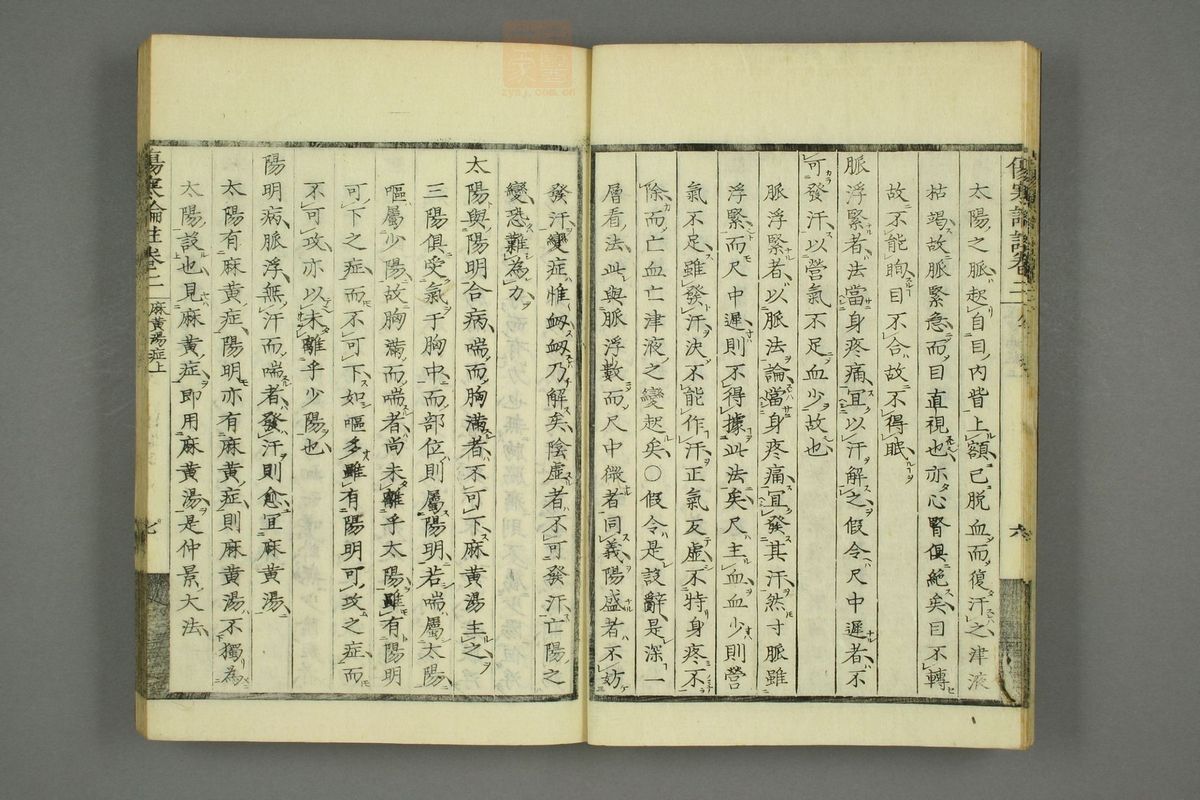 太陽之脈起自目內眥上額已脫血而復汗之津液
枯竭故脈緊急而目直視也亦心腎俱絕矣目不轉
故不能眴目不合故不得眠
脈浮緊者法當身疼痛宜以汗解之假令尺中遲者不
可發汗以營氣不足血少故也
脈浮緊者以脈法論當身疼痛宜發其汗然寸脈雖
浮緊而尺中遲則不得據此法矣尺主血血少則營
氣不足雖發汗決不能作汗正氣反虛不特身疼不
除而亡血亡津液之變起矣〇假令是設辭是深一
層看法此與脈浮數而尺中微者同義陽盛者不妨
發汗變症惟衄衄乃解矣陰虛者不可發汗亡陽之
變恐難為力
太陽與陽明合病喘而胸滿者不可下麻黃湯主之
三陽俱受氣于胸中而部位則屬陽明若喘屬太陽
嘔屬少陽故胸滿而喘者尚未離乎太陽雖有陽明
可下之症而不可下如嘔多雖有陽明可攻之症而
不可攻亦以未離乎少陽也
陽明病脈浮無汗而喘者發汗則愈宜麻黃湯
太陽有麻黃症陽明亦有麻黃症則麻黃湯不獨為
太陽設也見麻黃症即用麻黃湯是仲景大法
傷寒論註卷二
麻黃湯症上
七
六
zysj.com.cn